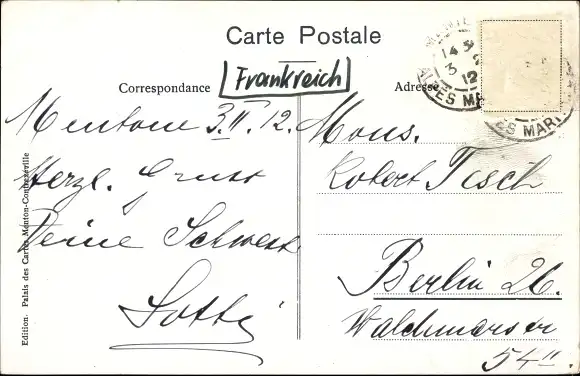 Carte Postale
Correspondance
Frankreich
Adresse
Mentone 3.II.12.
Herzl. Gruss
Deine Schwest.
Lotte
Mons.
Robert Tisch
Berlin 26.
54 II.
14 3
3
12
ES MAR
Edition. Palais des Cartes Menton-Contrexéville